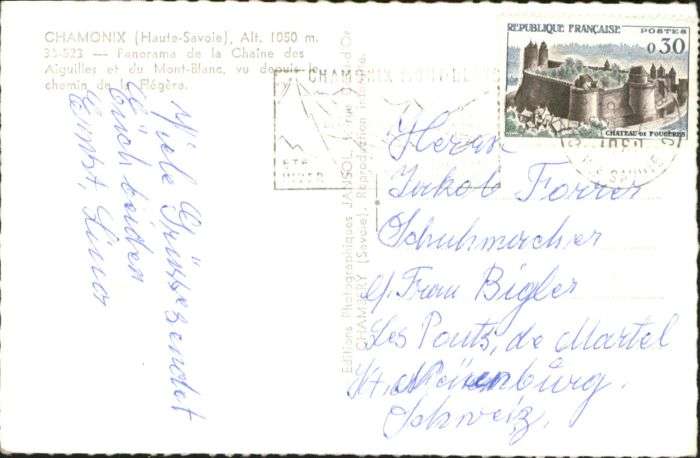 CHAMONIX (Haute-Savoie), Alt. 1050 m.
35-523 — Panorama de la Chaîne des
Aiguilles et du Mont-Blanc, vu depuis le
chemin de la Flégère.
REPUBLIQUE FRANÇAISE
POSTES
0,30
CHATEAU DE FOUGÈRES
CHAMONIX
ETE
HIVER
SAVOIE
Éditions Photographiques
CHAMBÉRY (Savoie). Reproduction
Viele Grüsse sendet
Euch beiden
Ernst, Lina
Herrn
Jakob Forrer
Schuhmacher
b/ Frau Bigler
Les Ponts, de Martel
Kt. Neuenburg.
Schweiz.